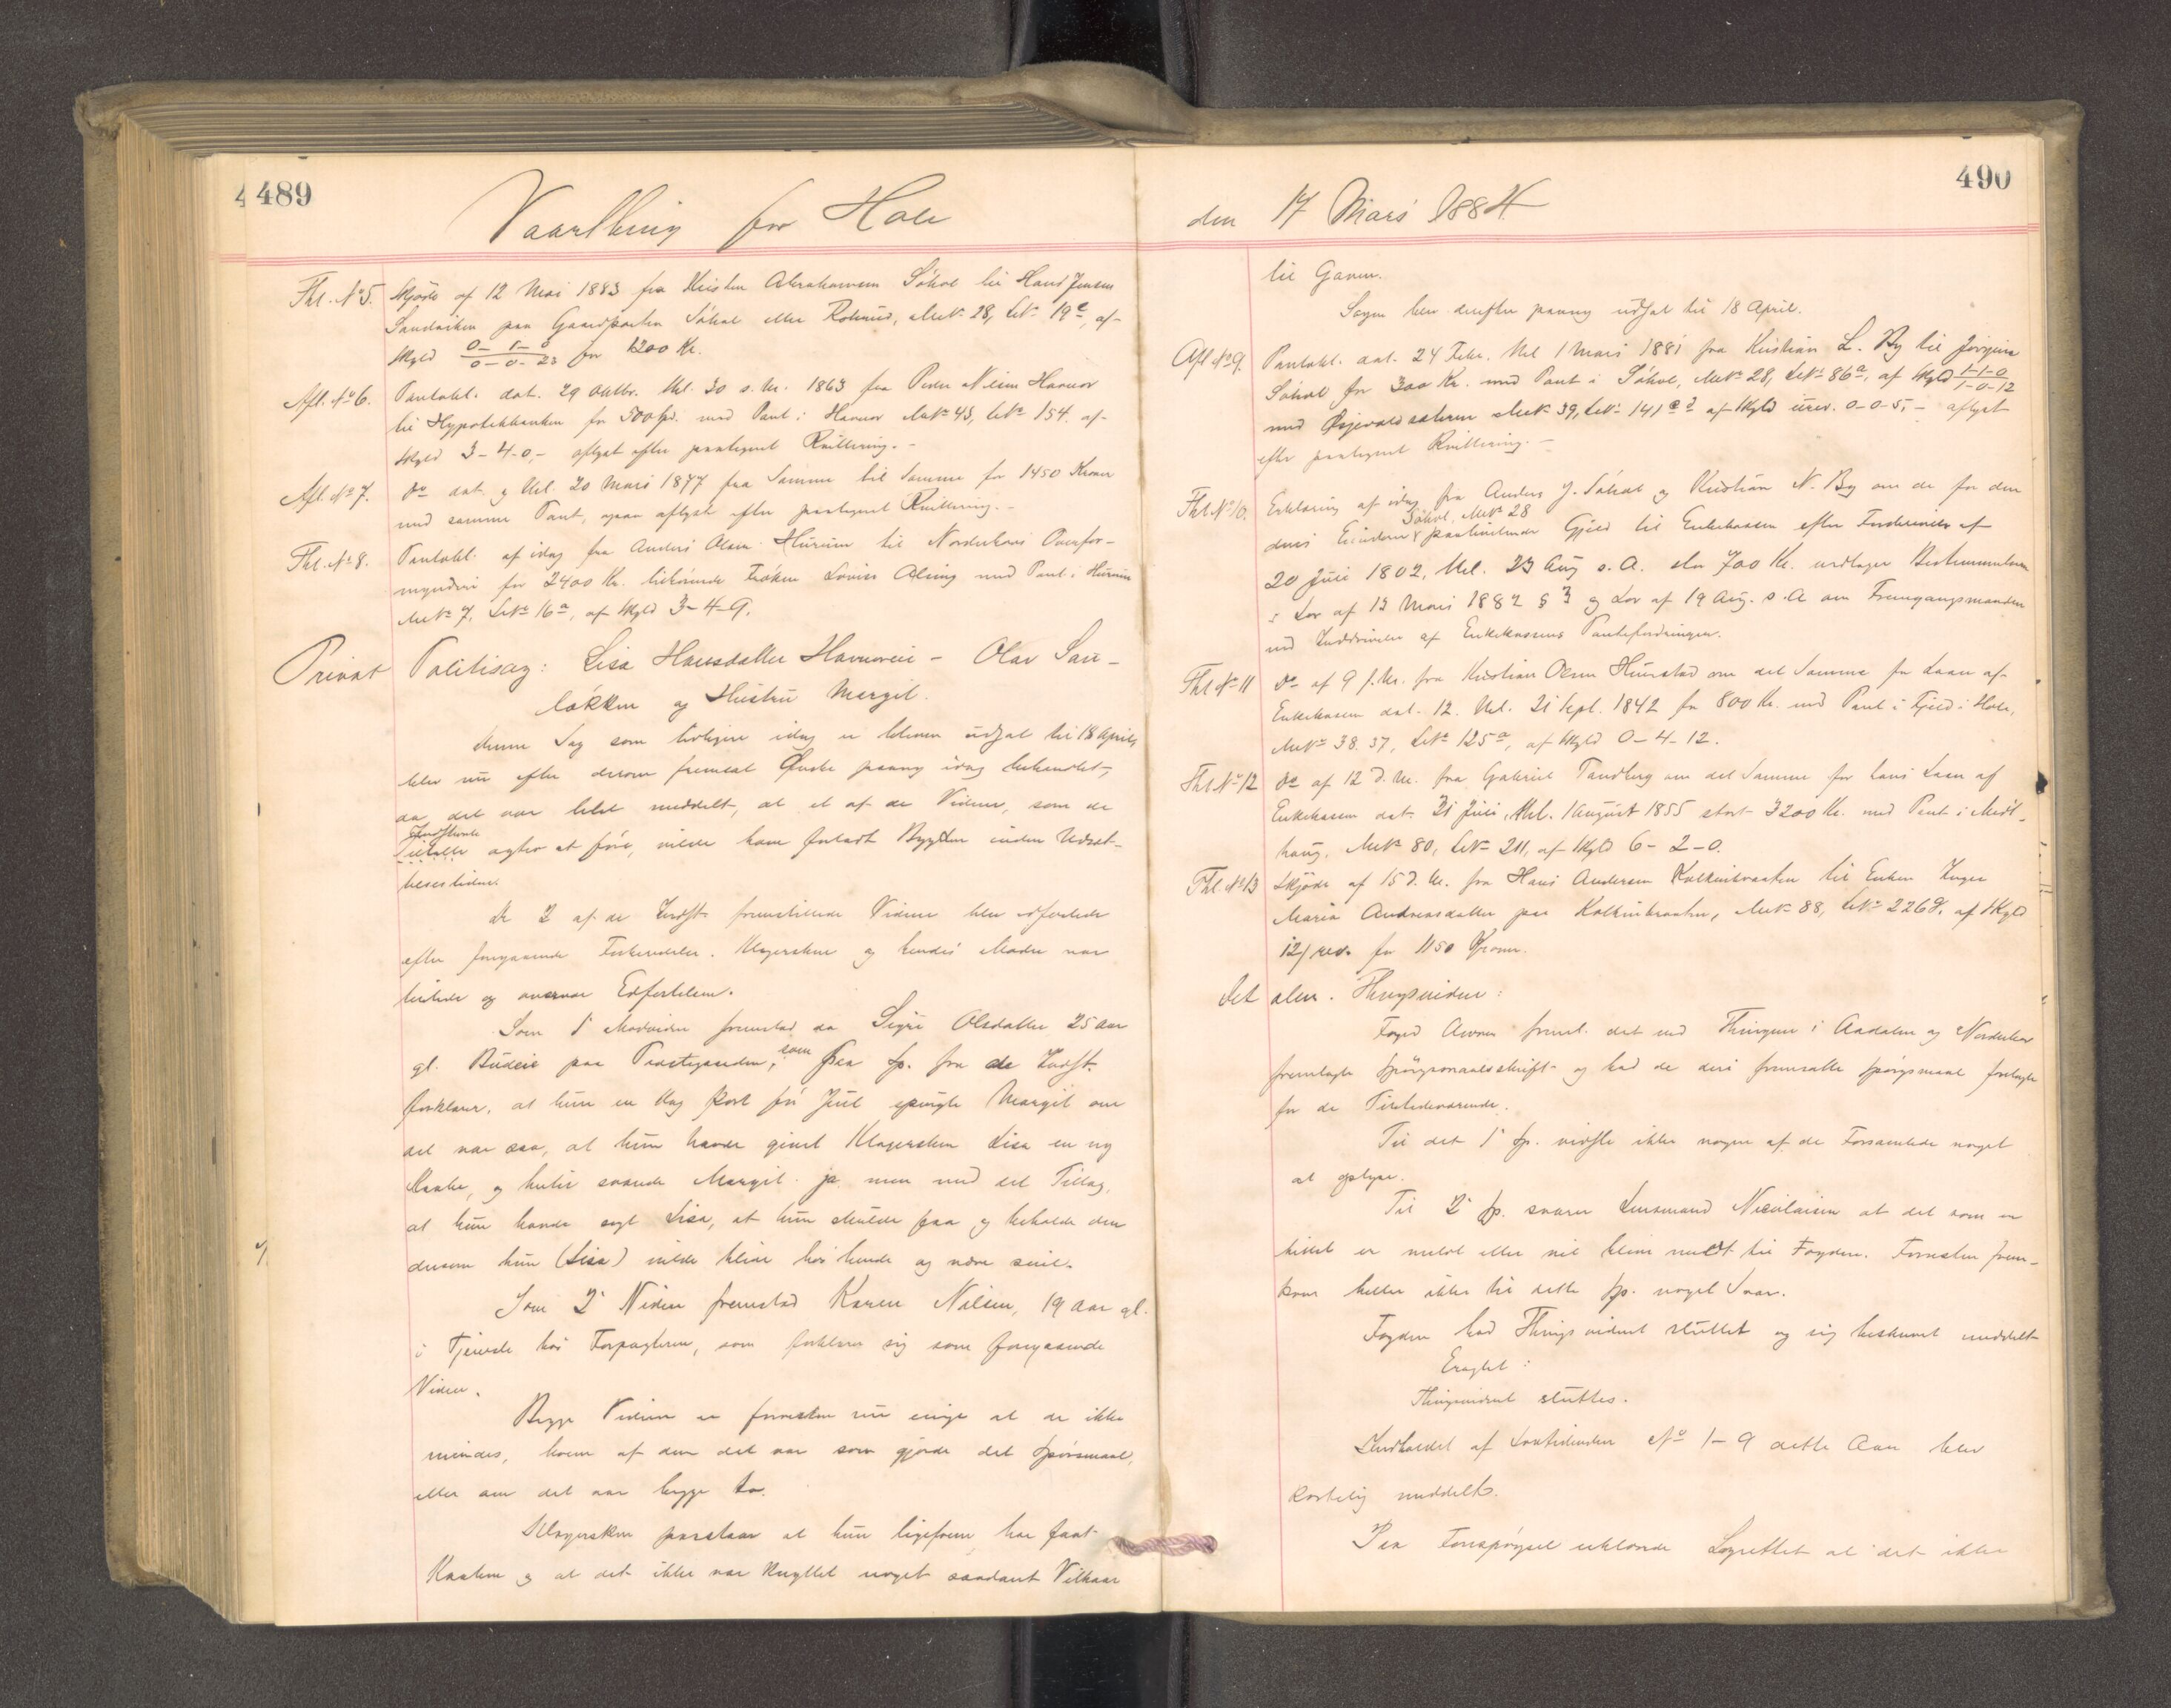 489
Vaarthing for Hole
Thl. No 5. Skjöde af 12 Mai 1883 fra Kristen Abrahamsen Søhol til Hans Jensen
Sandviken paa Gaardparten Søhol eller Rolmus, Mt.No 28, LNo 19e, af
Skyld 0-1-0 / 0-0-23 for 1200 Kr.
Afl. No 6. Pantobl. dat. 29 Oktbr. thl. 30 s. M. 1863 fra Peder Nilsen Havnor
til Hypothekbanken for 500 Spd. med Pant i Havnor MtNo 43, LNo 154, af
Skyld 3-4-0,- aflyst efter paategnet Kvittering.-
Afl. No 7. Do dat. og thl. 20 Mars 1877 fra Samme til Samme for 1450 Kroner
med samme Pant, ogsaa aflyst efter paategnet Kvittering.-
Thl. No 8. Pantobl. af idag fra Anders Olsen Hurum til Norderhovs Overfor-
mynderi for 2400 Kr. tilhørende Frøken Lovise Alsing med Pant i Hurum
MtNo 7, LNo 16a, af Skyld 3-4-9.
Privat Politisag: Lisa Hansdatter Havnoreie - Olav Sau-
løkken og Hustru Margit.
Denne Sag som tidligere idag er bleven udsat til 18 April,
blev nu efter derom fremsat Ønske paany idag behandlet,
da det var blet meddelt, at et af de Vidner, som de
Indstevnte
Tiltalte agter at føre, vilde have forladt Bygden inden Udsæt-
telsestiden.
De 2 af de Indst. fremstillede Vidner blev edfæstede
efter foregaaende Forberedelse. Klagersken og hendes Moder var
tilstede og overvar Edfæstelsen.
Som 1ste Modvidne fremstod da Sigri Olsdatter 25 Aar
gl. Budeie paa Præstegaarden, som paa Sp. fra de Indst.
forklarer, at hun en Dag kort før Jul spurgte Margit om
det var saa, at hun havde givet Klagersken Lisa en ny
Kaabe, og hertil svarede Margit ja men med det Tillæg,
at hun havde sagt Lisa, at hun skulde faa og beholde den
dersom hun (Lisa) vilde blive hos hende og være snil.
Som 2det Vidne fremstod Karen Nilsen, 19 Aar gl.
i Tjeneste hos Forpagteren, som forklarer sig som foregaaende
Vidne.
Begge Vidner er forresten nu enige at de ikke
mindes, hvem af dem det var som gjorde det Spørsmaal,
eller om det var begge to.
Klagersken paastaar at hun ligefrem har faat
Kaaben og at det ikke var knyttet noget saadant Vilkaar
490
den 17 Mars 1884
til Gaven.
Sagen blev derefter paany udsat til 18 April.
Afl No 9. Pantobl. dat. 24 Febr. thl 1 Mars 1881 fra Kristian L. By til Jørgine
Søhol for 300 Kr. med Pant i Søhol, MtNo 28, LNo 86a, af Skyld 1-1-0 / 1-0-12
med Øsjevoldsæteren MtNo 39, LNo 141 af Skyld urev. 0-0-5,- aflyst
efter paategnet Kvittering.-
Thl. No 10. Erklæring af idag fra Anders J. Søhol og Kristian N. By om de for den
Søhol, MtNo 28
deres Eiendom paahvilende Gjæld til Enkekassen efter Indenture af
20 Juli 1802, thl. 23 Aug s. A. stor 700 Kr. vedtager Bestemmelsen
i Lov af 13 Mars 1882 § 3 og Lov af 19 Aug. s. A om Fremgangsmaaden
ved Inddrivelse af Enkekassens Pantefordringer.
Thl No 11 Do af 9 f. M. fra Kristian Olsen Hurstad om det Samme for Laan af
Enkekassen dat. 12. thl. 21 Sept. 1842 for 800 Kr. med Pant i Fjeld i Hole,
MtNo 38. 37, LNo 125a, af Skyld 0-4-12.
Thl No 12 Do af 12 d. M. fra Gabriel Tandberg om det Samme for hans Laan af
Enkekassen dat. 21 Juli, thl. 1 August 1855 stort 3200 Kr. med Pant i Midt-
haug, MtNo 80, LNo 211, af Skyld 6-2-0.
Thl. No 13 Skjøde af 15 d. M. fra Hans Andersen Kolkinbraaten til Enken Inger
Maria Andreasdatter paa Kolkinbraaten, MtNo 88, LNo 226, af Skyld
12 / rev. for 1150 Kroner.
Det alm. Thingsvidne:
Foged Awan freml. det ved Thingene i Aadalen og Norderhov
fremlagte Spörgsmaalsskrift og bad de deri fremsatte Spörgsmaal forelagte
for de Tilstedeværende.
Til det 1ste Sp. vidste ikke nogen af de Forsamlede noget
at oplyse.
Til 2det Sp. svarer Lensmand Nicolaisen at det som er
hittet er meldt eller vil blive meldt til Fogden. Forresten frem-
kom heller ikke til dette Sp. noget Svar.
Fogden bad Thingsvidnet sluttet og sig beskrevet meddelt
Eragtet:
Thingsvidnet sluttes.
Indholdet af Lovtidenden No 1-9 dette Aar blev
kortelig meddelt.
Paa Forespørgsel erklærede Lagrettet at det ikke